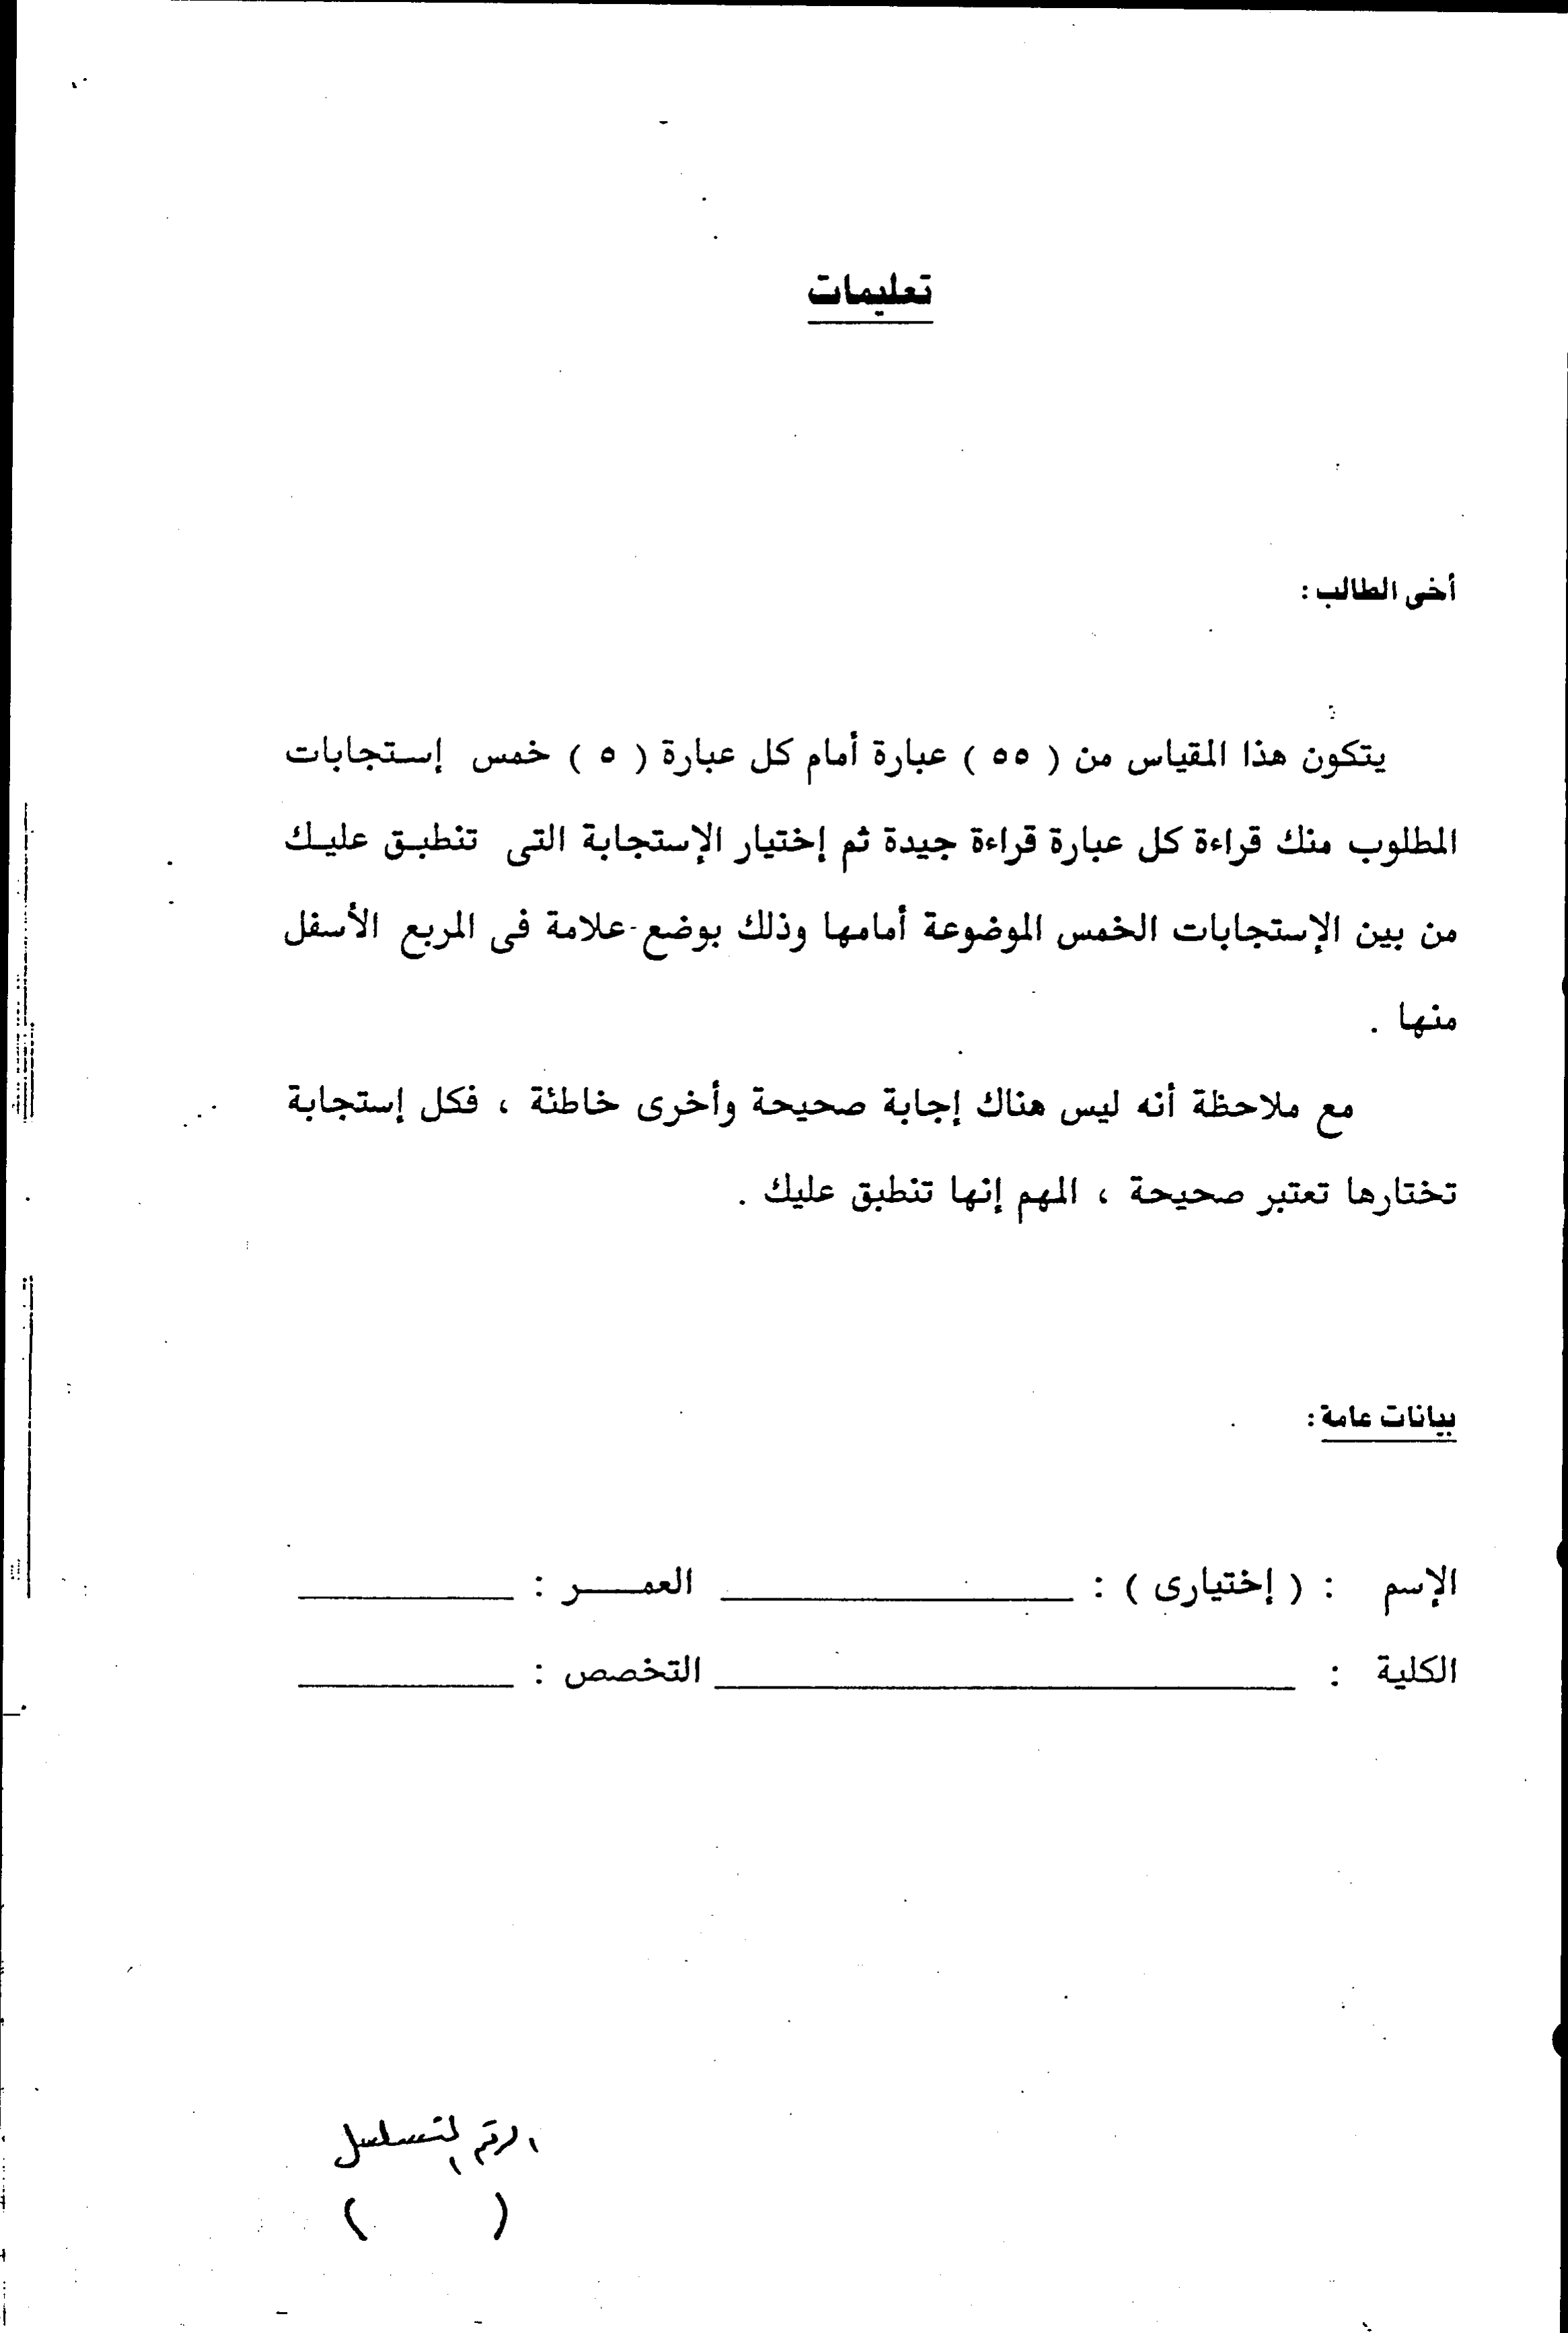 تعليمات
أخى الطالب :
يتكون هذا المقياس من ( ٥٥ ) عبارة أمام كل عبارة ( ٥ ) خمس إستجابات
المطلوب منك قراءة كل عبارة قراءة جيدة ثم إختيار الإستجابة التى تنطبـق عليـك
من بين الإستجابات الخمس الموضوعة أمامها وذلك بوضع علامة فى المربع الأسفل
منها .
مع ملاحظة أنه ليس هناك إجابة صحيحة وأخرى خاطئة ، فكل إستجابة
تختارها تعتبر صحيحة ، المهم إنها تنطبق عليك .
بيانات عامة :
الإسم : ( إختيارى ) : ____________ العمـــــر : ________
الكلية : ____________________ التخصص : ________
الرقم التسلسل
( )